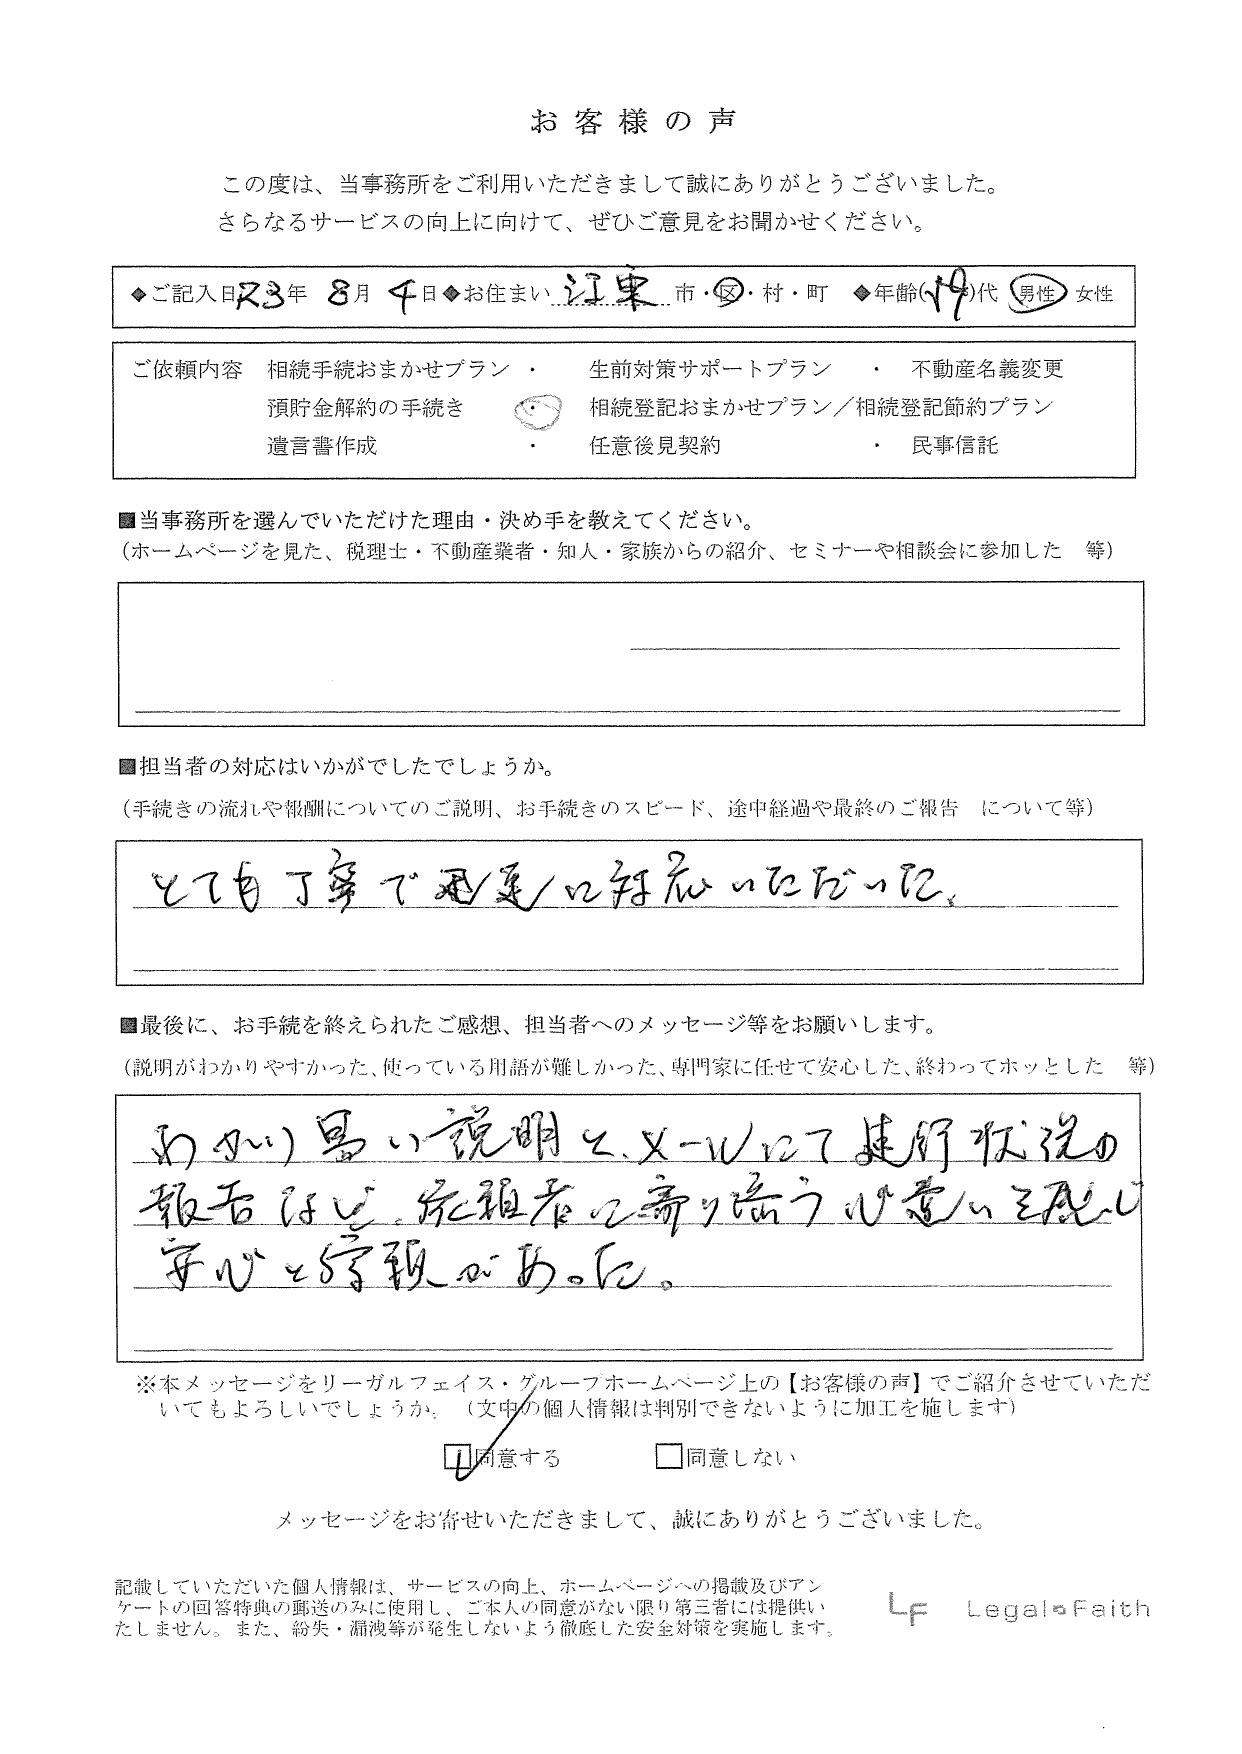 お客様の声
この度は、当事務所をご利用いただきまして誠にありがとうございました。
さらなるサービスの向上に向けて、ぜひご意見をお聞かせください。
◆ご記入日R3年 8月 4日◆お住まい 江東 市・区・村・町 ◆年齢( )代 男性 女性
ご依頼内容 相続手続おまかせプラン ・ 生前対策サポートプラン ・ 不動産名義変更
預貯金解約の手続き ・ 相続登記おまかせプラン／相続登記節約プラン
遺言書作成 ・ 任意後見契約 ・ 民事信託
■当事務所を選んでいただけた理由・決め手を教えてください。
（ホームページを見た、税理士・不動産業者・知人・家族からの紹介、セミナーや相談会に参加した 等）
■担当者の対応はいかがでしたでしょうか。
（手続きの流れや報酬についてのご説明、お手続きのスピード、途中経過や最終のご報告 について等）
とても丁寧で迅速に対応いただいた。
■最後に、お手続を終えられたご感想、担当者へのメッセージ等をお願いします。
（説明がわかりやすかった、使っている用語が難しかった、専門家に任せて安心した、終わってホッとした 等）
わかり易い説明と、メールにて進行状況の
報告など、依頼者に寄り添う心遣いを感じ
安心と信頼があった。
※本メッセージをリーガルフェイス・グループホームページ上の【お客様の声】でご紹介させていただ
いてもよろしいでしょうか。（文中の個人情報は判別できないように加工を施します）
同意する 同意しない
メッセージをお寄せいただきまして、誠にありがとうございました。
記載していただいた個人情報は、サービスの向上、ホームページへの掲載及びアン
ケートの回答特典の郵送のみに使用し、ご本人の同意がない限り第三者には提供い
たしません。また、紛失・漏洩等が発生しないよう徹底した安全対策を実施します。
LF Legal Faith